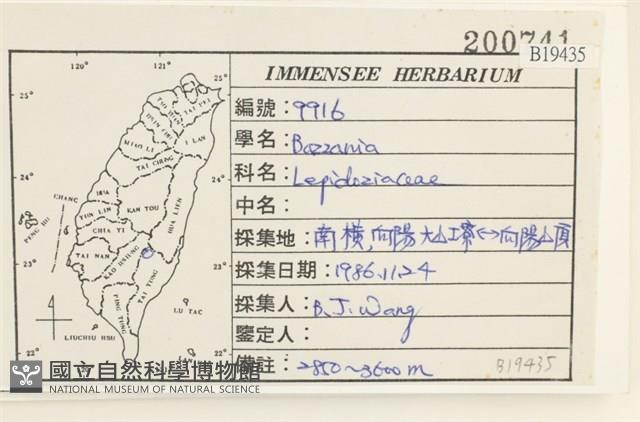 200741
B19435
IMMENSEE HERBARIUM
編號：9916
學名：Bazzania
科名：Lepidoziaceae
中名：
採集地：南橫，向陽大山工寮↔向陽山頂
採集日期：1986.11.24
採集人：B.J. Wang
鑒定人：
備註：2850~3600m
B19435
120°
121°
25°
25°
24°
24°
23°
23°
22°
22°
TAI PEI
I LAN
MIAO LI
TAI CHUNG
NAN TOU
HUA LIEN
YUN LIN
CHIA YI
TAI NAN
KAO HSIUNG
TAI TUNG
PING TUNG
PENG HU
LIUCHIU HSU
LU TAO
國立自然科學博物館
NATIONAL MUSEUM OF NATURAL SCIENCE